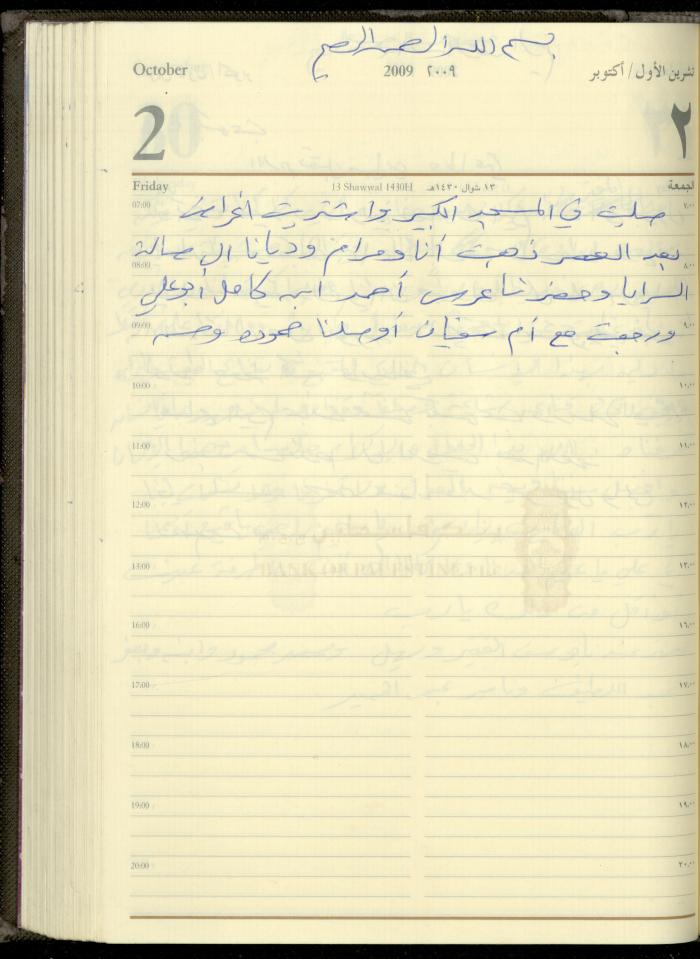 بسم الله الرحمن الرحيم
October 2009 ٢٠٠٩ تشرين الأول / أكتوبر
2 ٢
Friday 13 Shawwal 1430H ١٣ شوال ١٤٣٠هـ الجمعة
07:00 صليت في المسجد الكبير واشتريت أغراض ٧,٠٠
بعد العصر ذهبت أنا ومرام وديانا الى صالة
08:00 ٨,٠٠
السرايا وحضرنا عرس أحمد ابن كامل أبو علي
09:00 ورجعت مع أم سفيان أوصلنا حموده ٩,٠٠
10:00 ١٠,٠٠
11:00 ١١,٠٠
12:00 ١٢,٠٠
13:00 BANK OF PALESTINE ١٣,٠٠
16:00 ١٦,٠٠
17:00 ١٧,٠٠
18:00 ١٨,٠٠
19:00 ١٩,٠٠
20:00 ٢٠,٠٠